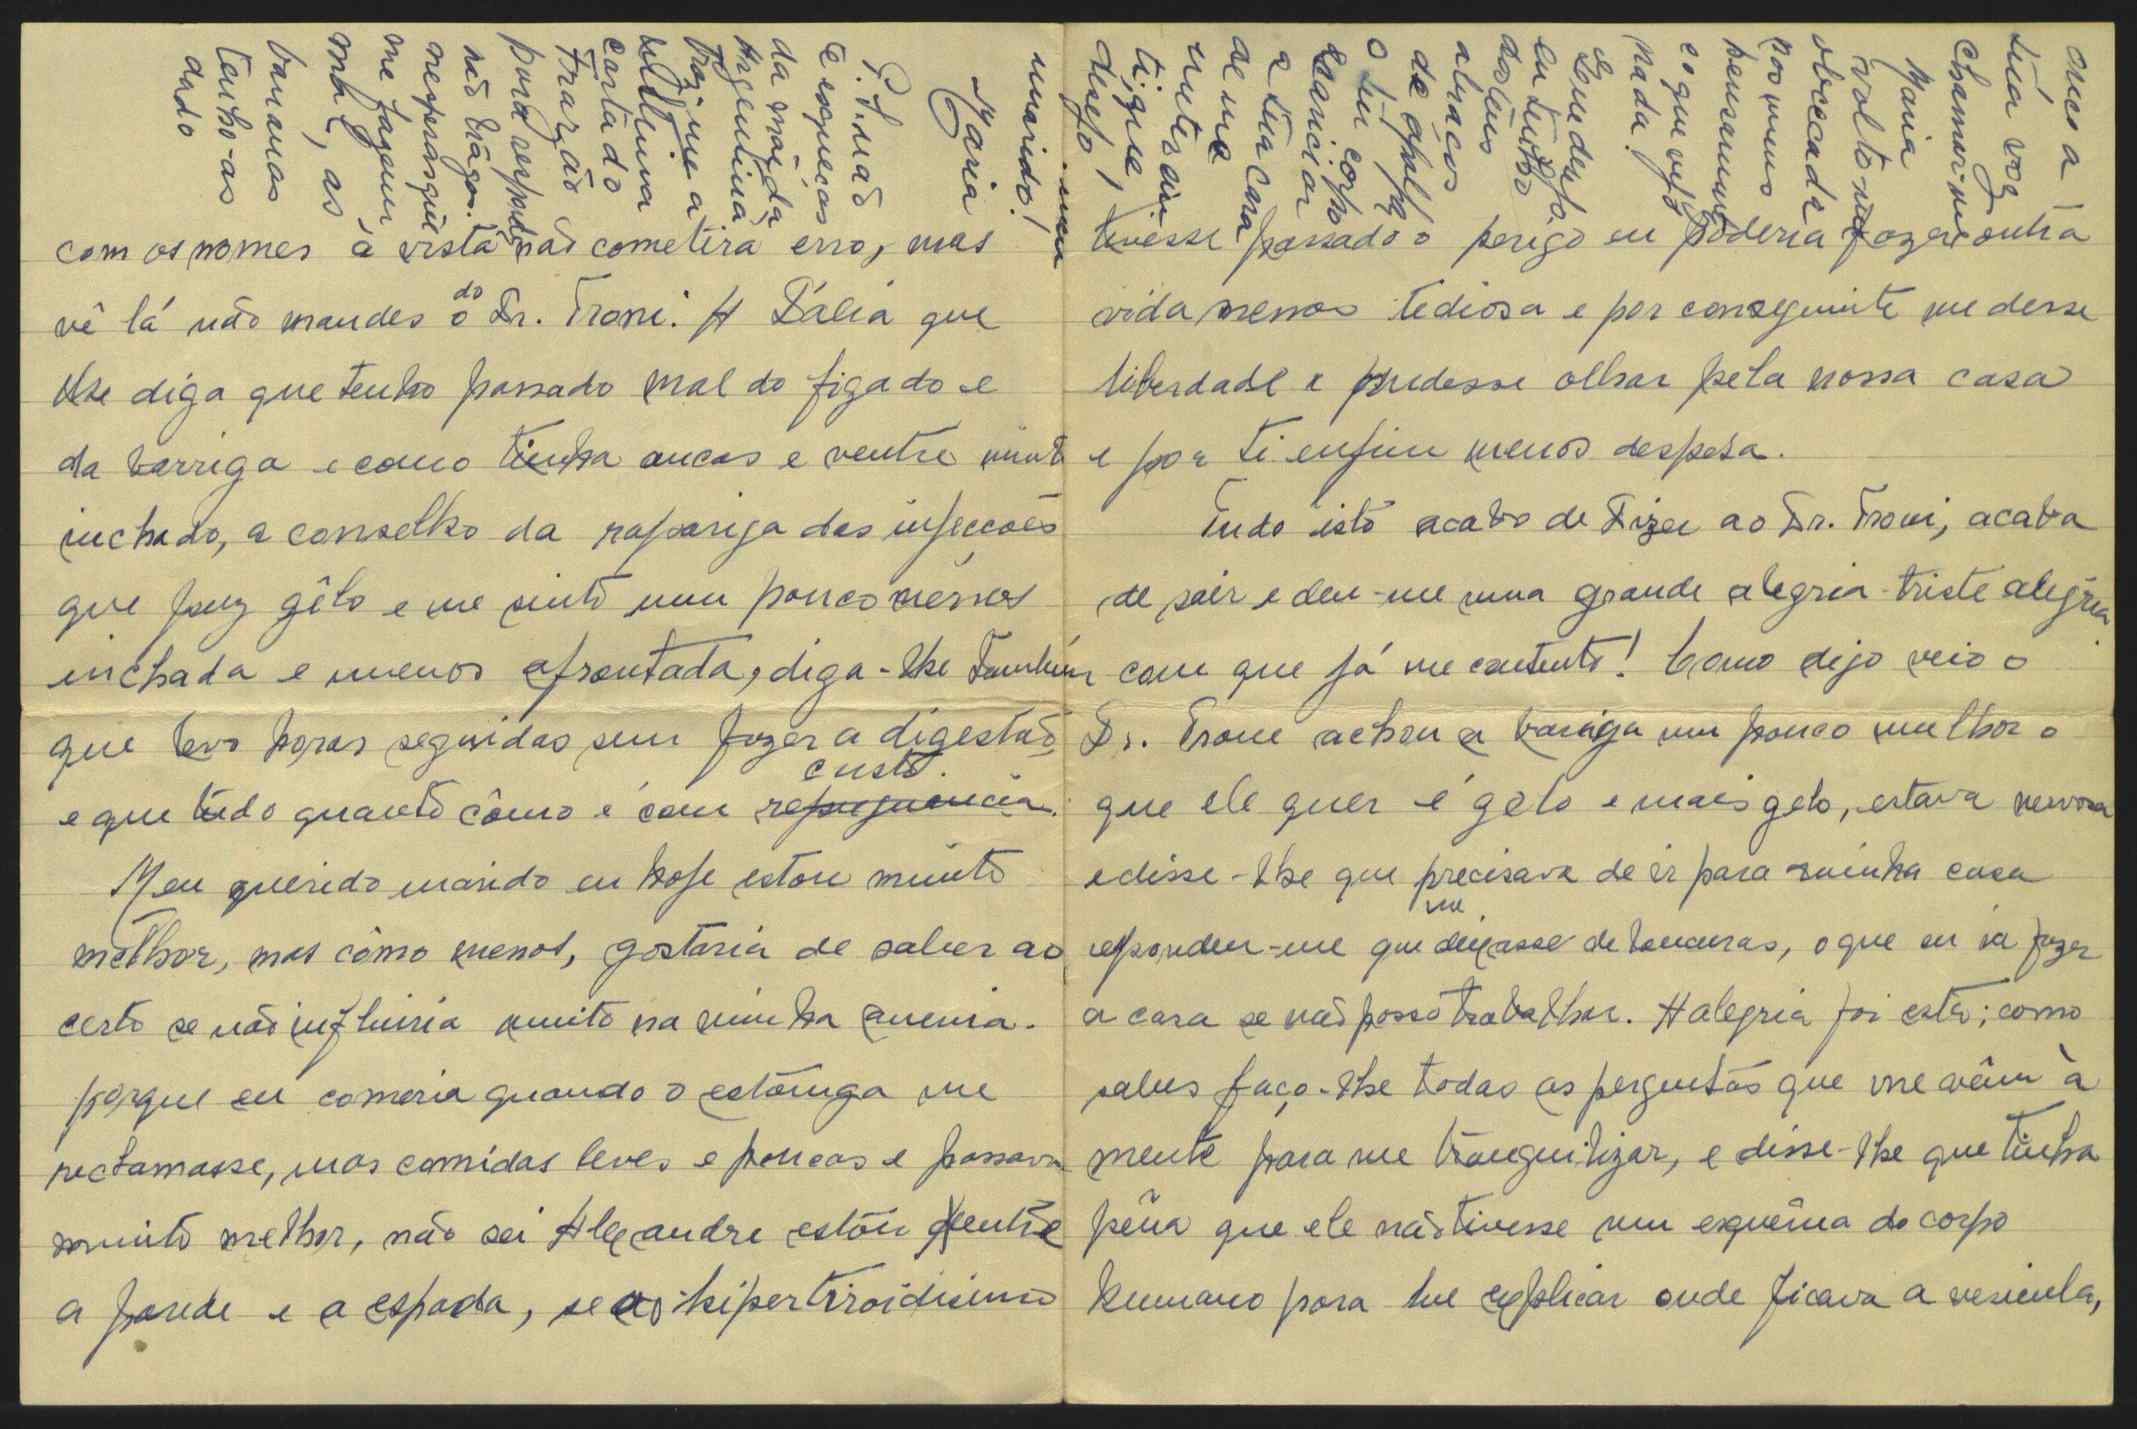 com os nomes à vista não cometirá erro, mas
vê lá não mandes o do Dr. Troni. A Dália que
lhe diga que tenho passado mal do figado e
da barriga e como tinha ancas e ventre muito
inchado, a conselho da rapariga das injecções
que faz gêlo e me sinto um pouco menos
inchada e menos afrontada, diga-lhe também
que levo horas seguidas sem fazer a digestão
e que tudo quanto cômo é com repugnancia custo.
Meu querido marido eu hoje estou muito
melhor, mas cômo menos, gostaria de saber ao
certo se não influiria muito na minha anemia.
porque eu comeria quando o estômago me
reclamasse, mas comidas leves e poucas e passava
muito melhor, não sei Alexandre estou entre
a parede e a espada, se ao hipertiroidisimo
tivesse passado o perigo eu poderia fazer outra
vida menos tediosa e por conseguinte me desse
liberdade e pudesse olhar pela nossa casa
e por ti enfim menos despesa.
Tudo isto acabo de dizer ao Dr. Troni, acaba
de sair e deu-me uma grande alegria - triste alegria
com que já me contento! Como digo veio o
Dr. Trone achou a barriga um pouco melhor o
que ele quer é gelo e mais gelo, estava nervosa
e disse-lhe que precisava de ir para minha casa
respondeu-me que me deixasse de loucuras, o que eu ia fazer
a casa se não posso trabalhar. A alegria foi esta; como
sabes faço-lhe todas as perguntas que me vêm à
mente para me tranquilizar, e disse-lhe que tinha
pêna que ele não tivesse um esquêma do corpo
humano para me explicar onde ficava a vesicula,
ouço a
tua voz
chamar-me
Maria
volto
obcecada
nos meus
pensamentos
e o que vejo
nada!
E quando
eu tenho
dos teus
abraços
de apalpar
o teu corpo
acariciar
a tua cara
de me
sinto em
ti que,
desejo,
meu
marido!
Maria
P.S. não
te esqueças
da mãe da
Argentina
traz-me a
ultima
carta do
Frazão
para responder
não tragas.
nesperas que
me fazem
mal, as
bananas
tenho-as
dado